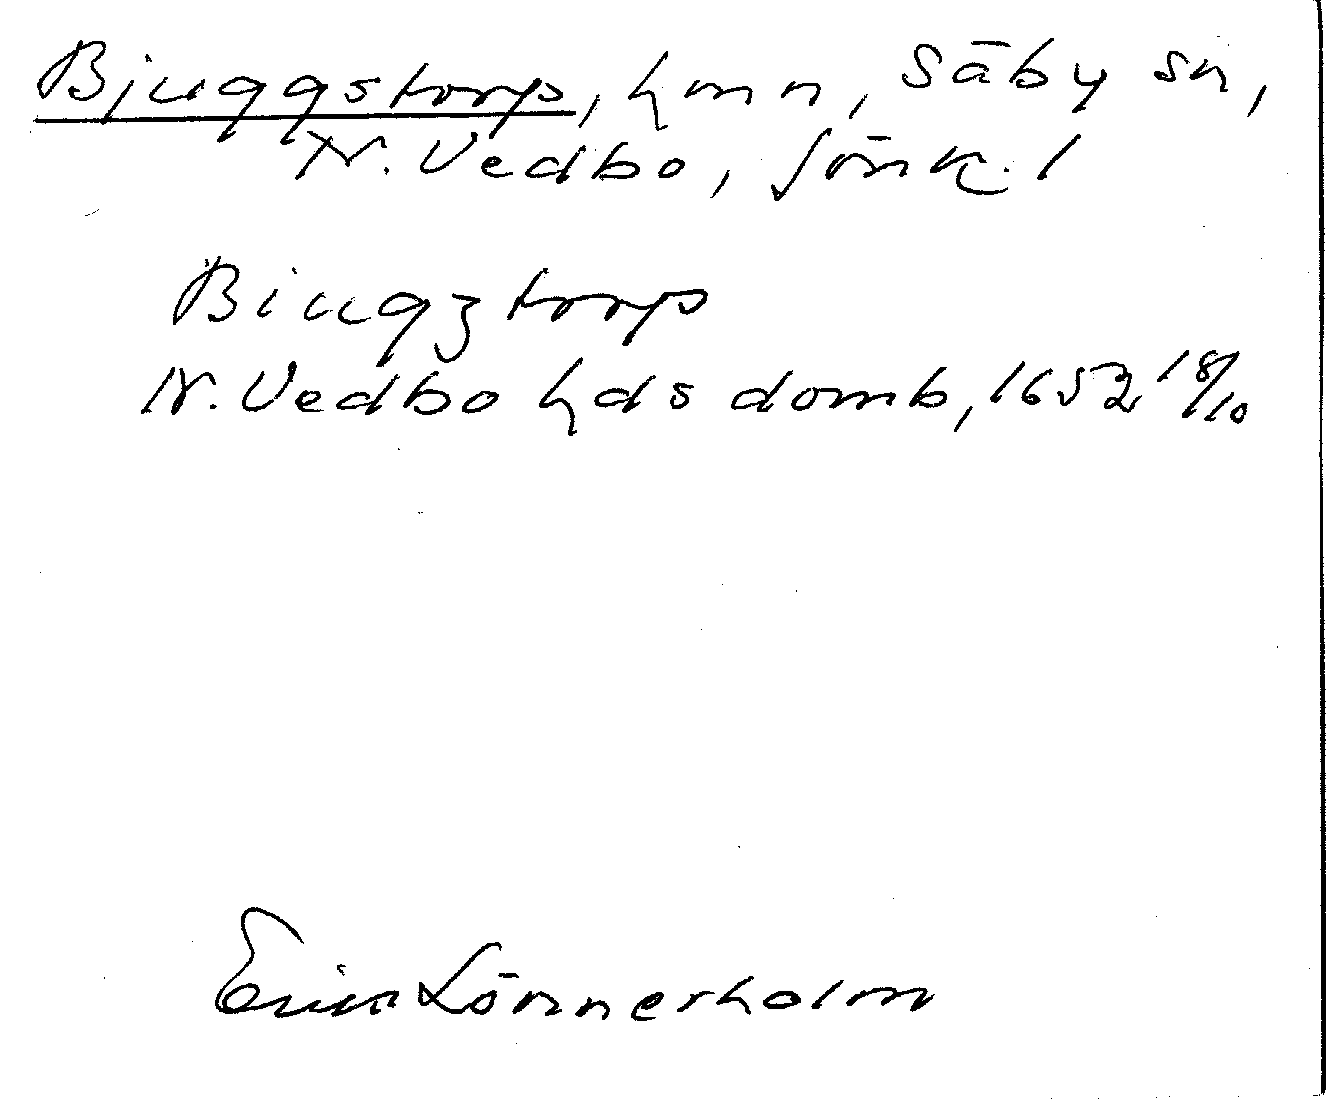 Bjuggstorp, hmn, Säby sn,
N. Vedbo, Jönk. l
Biugztorp
N. Vedbo hds domb, 1652 18/10
Erik Lönnerholm